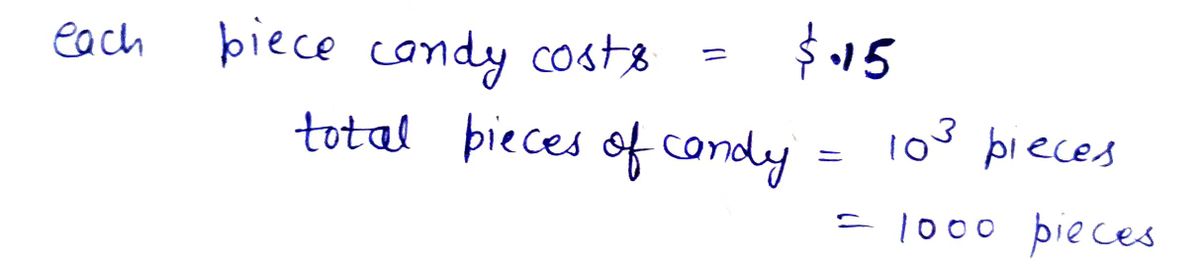 each piece candy costs = $.15
total pieces of candy = 10³ pieces
= 1000 pieces